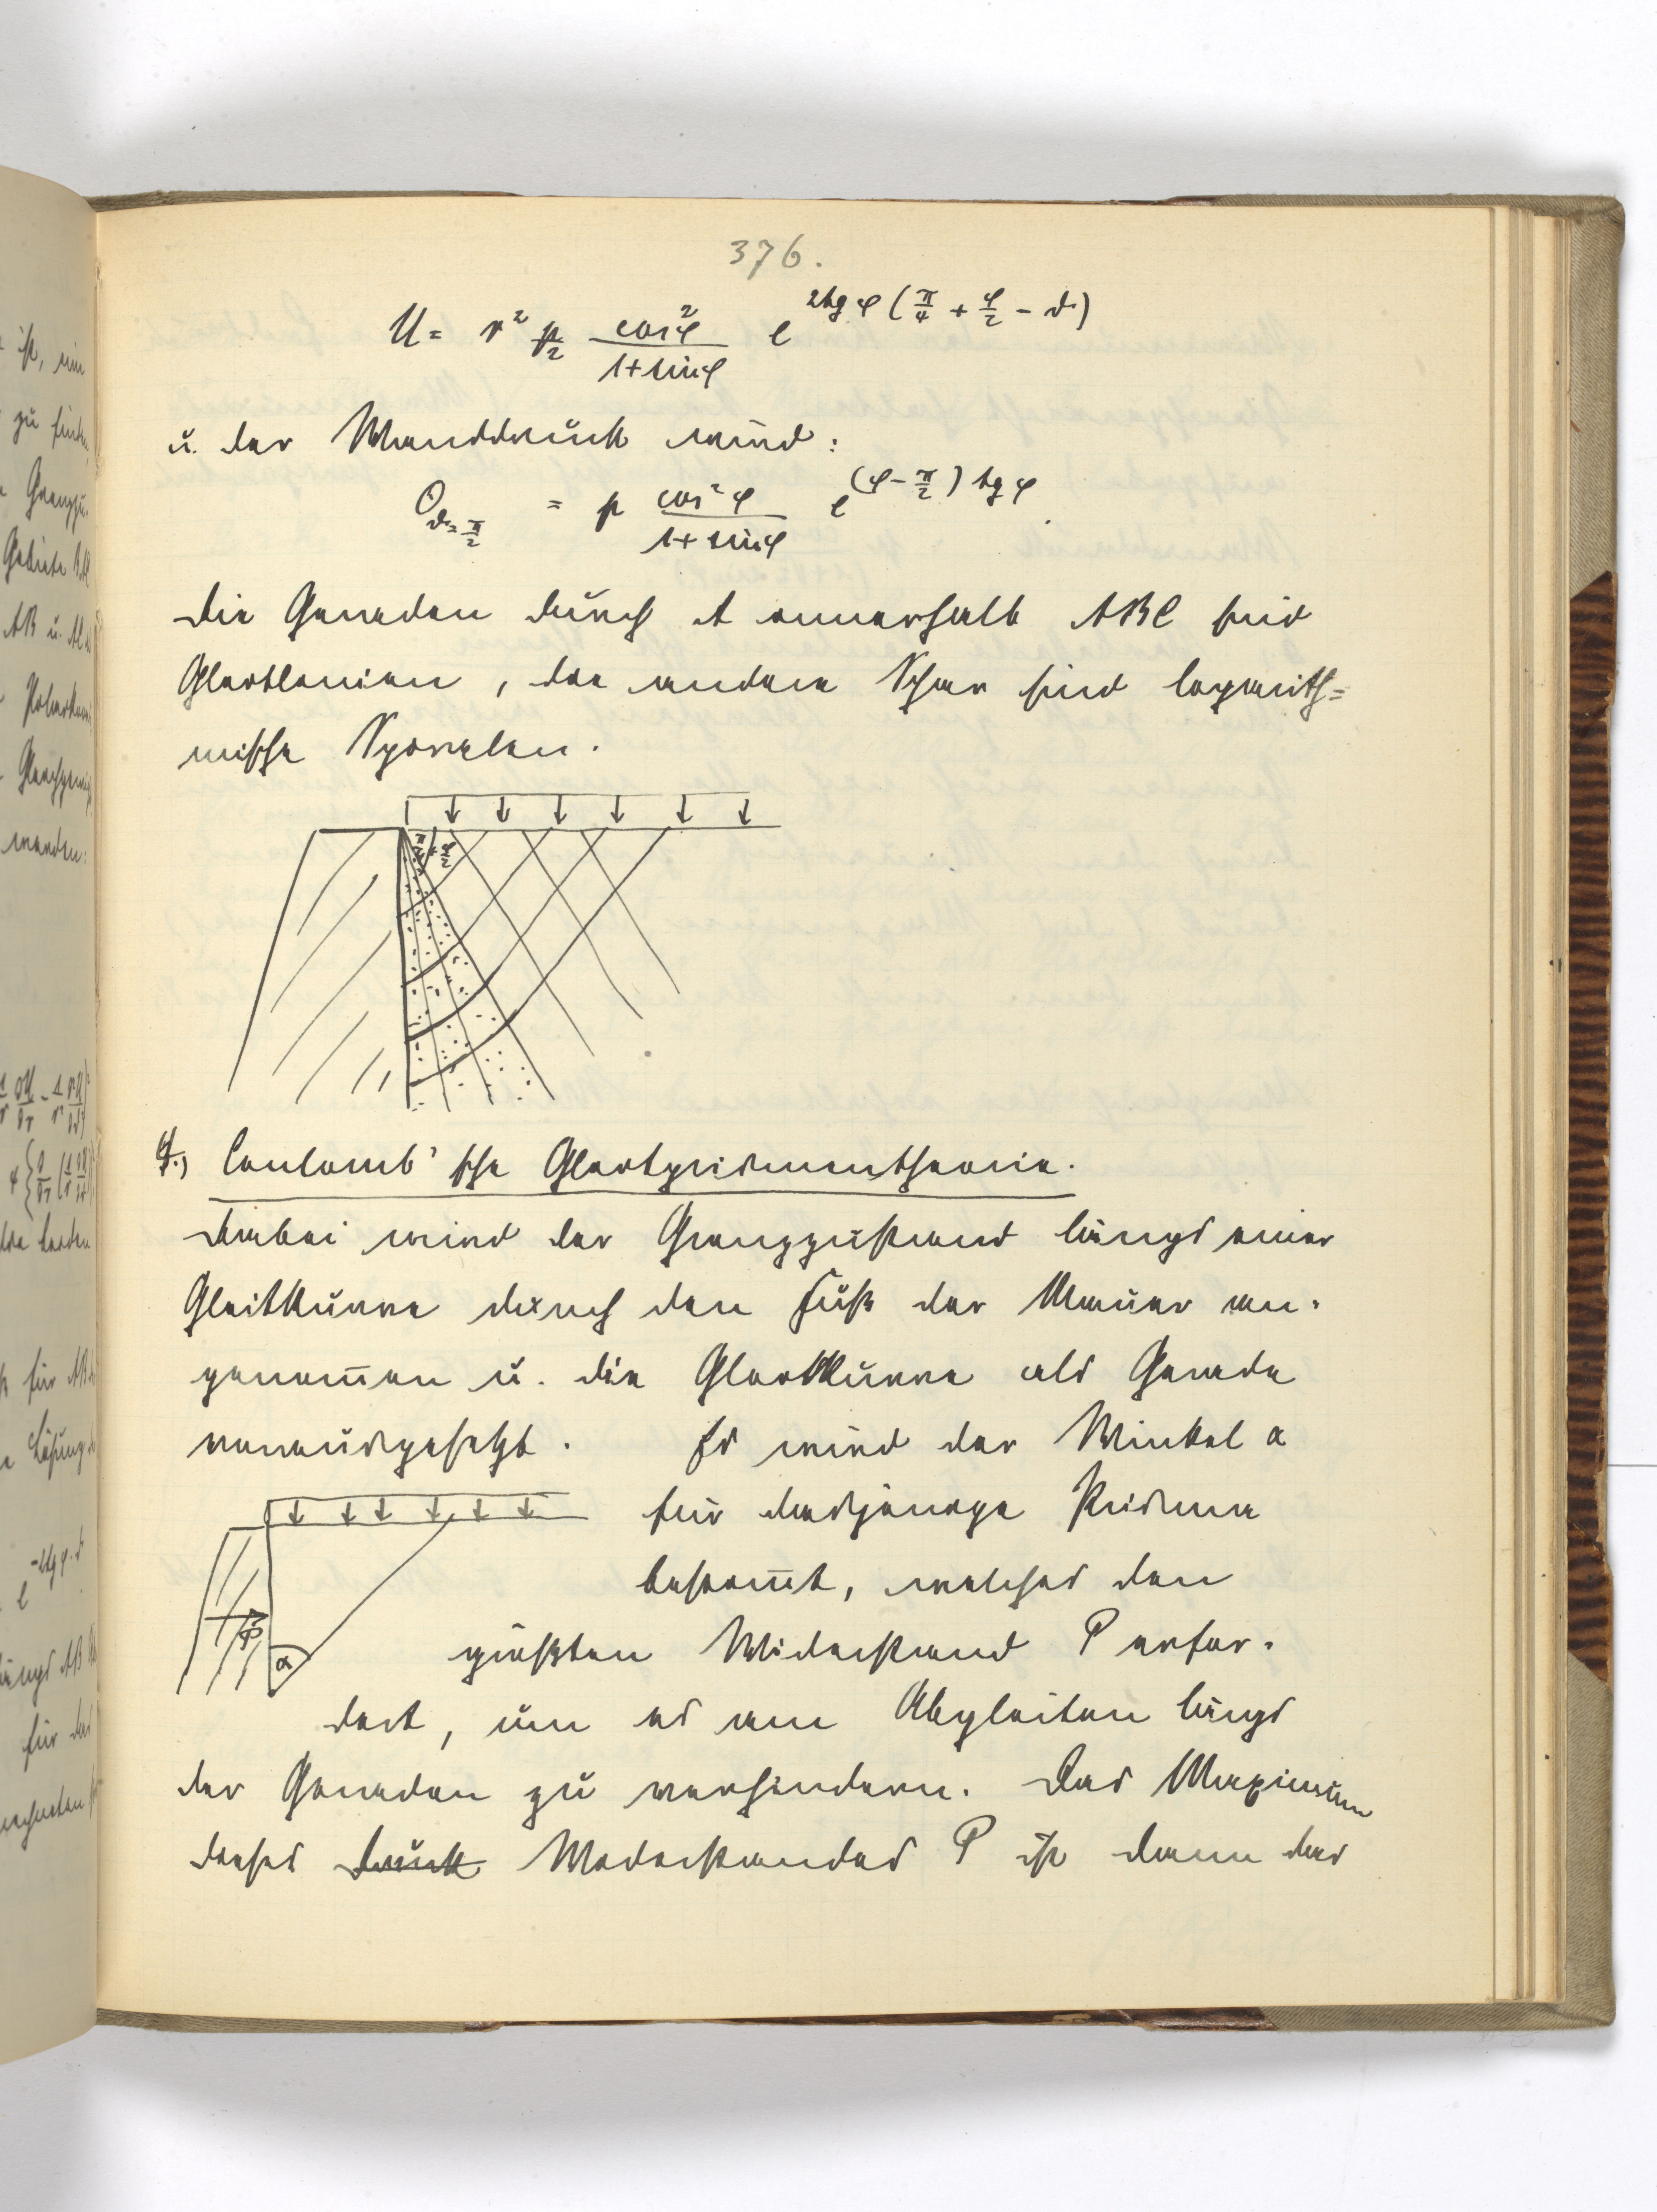 376.
U = r² p/2 cos²φ/(1+sinφ) e^{2tgφ(π/4 + φ/2 - ϑ)}
u. der Wanddruck wird:
σ_{ϑ=π/2} = p cos²φ/(1+sinφ) e^{(φ-π/2)tgφ}.
Die Geraden durch A innerhalb ABC sind
Gleitlinien, die andere Schar sind logarith=
mische Spiralen.
π/4 + φ/2
Coulomb'sche Gleitprismentheorie.
Dabei wird der Grenzzustand längs einer
Gleitkurve durch den Fuß der Mauer an-
genom̅en u. die Gleitkurve als Gerade
vorausgesetzt. Es wird der Winkel α
für dasjenige Prisma
bestim̅t, welches den
P
α
größten Widerstand P erfor-
dert, um es am Abgleiten längs
der Geraden zu verhindern. Das Maximum
dieses Druck Widerstandes P ist dann das